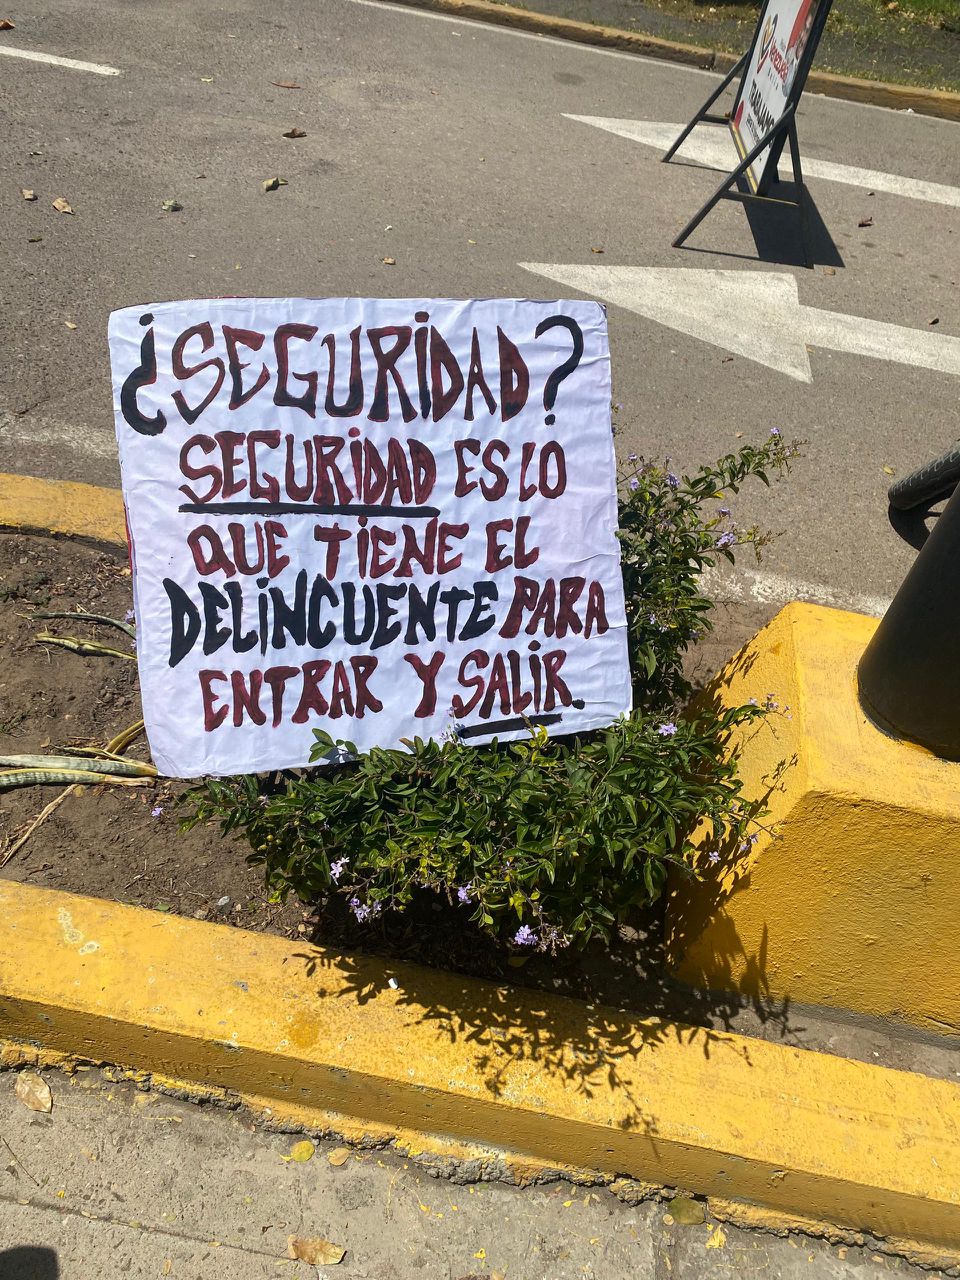 ¿SEGURIDAD?
SEGURIDAD ES LO
QUE TIENE EL
DELINCUENTE PARA
ENTRAR Y SALIR.